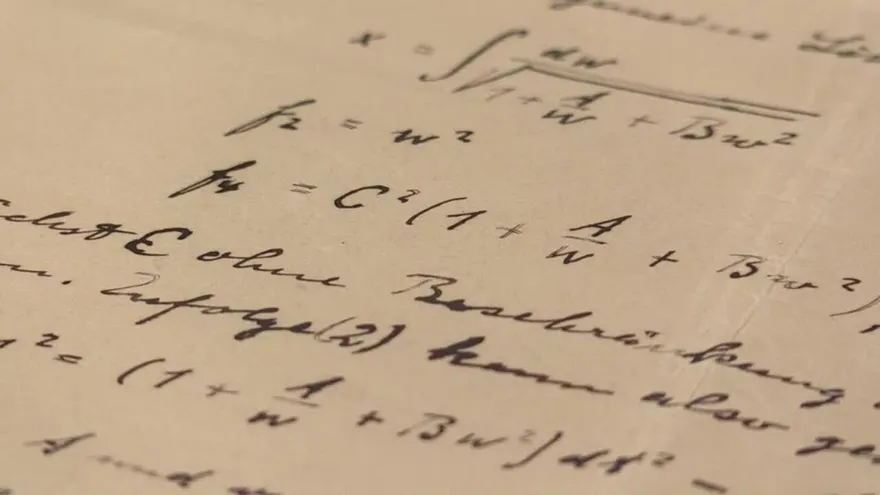 x = ∫ dw / √(1 + A/w + Bw²)
f₂ = w²
f₄ = C²(1 + A/w + Bw²),
C ohne Beschränkung
. Zufolge (2) kann also
² = (1 + A/w + Bw²) dt² –
A und